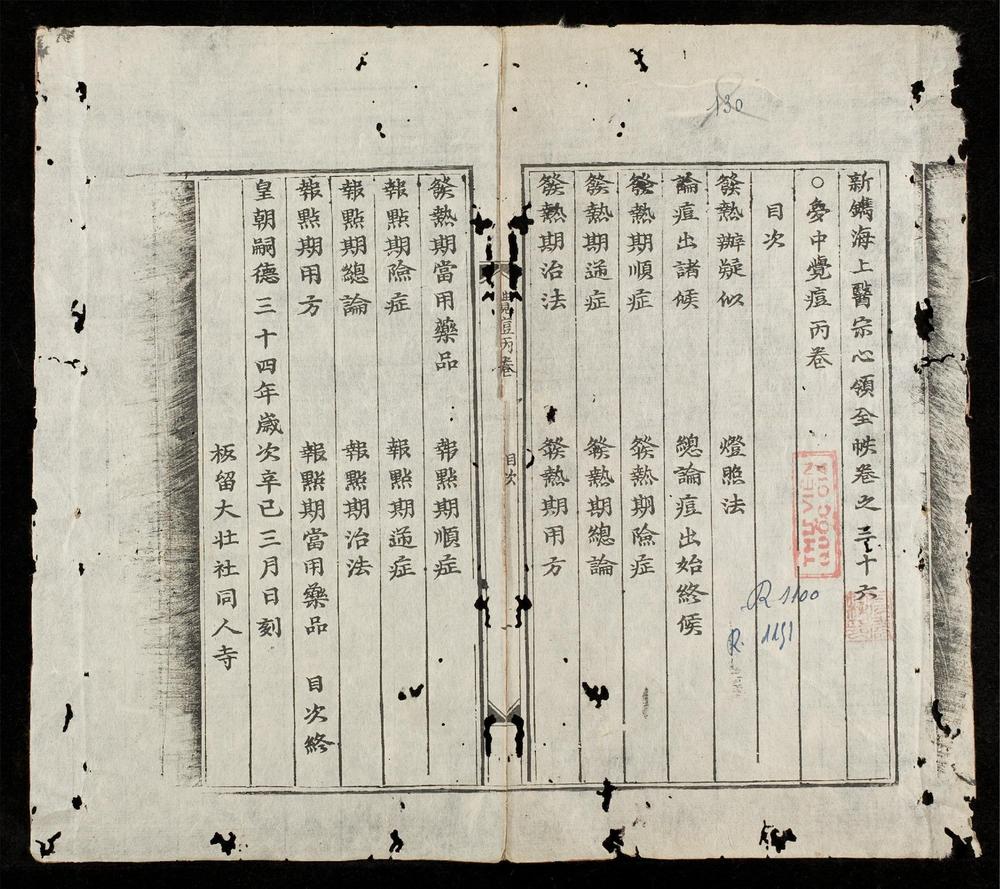 130
新鐫海上醫宗心領全帙卷之三十六
○夢中覺痘丙卷
目次
發熱辦疑似 燈照法
論痘出諸候 總論痘出始終候
發熱期順症 發熱期險症
發熱期逆症 發熱期總論
發熱期治法 發熱期用方
覺痘丙卷 目次
發熱期當用藥品 報點期順症
報點期險症 報點期逆症
報點期總論 報點期治法
報點期用方 報點期當用藥品 目次終
皇朝嗣德三十四年歲次辛巳三月日刻
板留大壯社同人寺
THƯ VIỆN
QUỐC GIA
R 1100
R. 1151